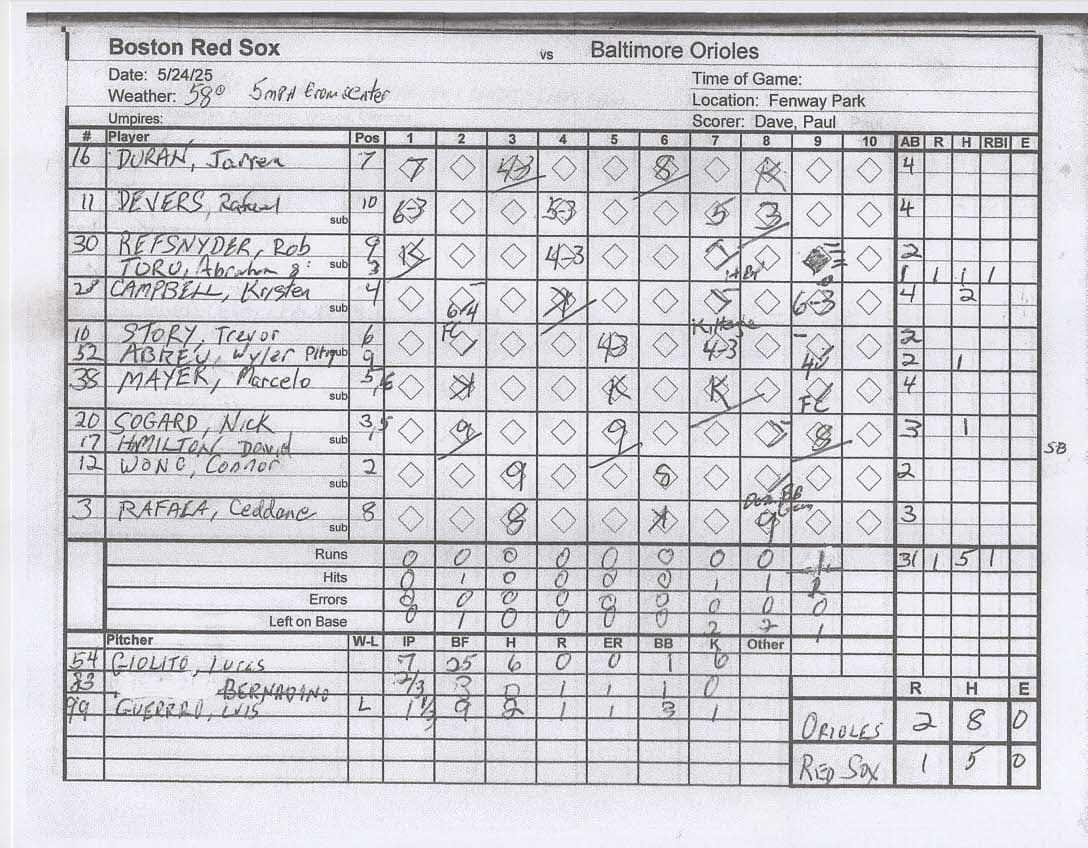 Boston Red Sox vs Baltimore Orioles
Date: 5/24/25 Time of Game:
Weather: 58° 5mPH from center Location: Fenway Park
Umpires: Scorer: Dave, Paul
# Player Pos 1 2 3 4 5 6 7 8 9 10 AB R H RBI E
16 DURAN, Jarren 7 7 43 8 K 4
11 DEVERS, Rafael sub 10 6-3 5-3 5 3 4
30 REFSNYDER, Rob 9 K 4-3 2
TORO, Abraham sub 3 1 1 1 1
28 CAMPBELL, Kristen sub 4 6-4 K 6-3 4 2
10 STORY, Trevor 6 FC 43 4-3 2
52 ABREU, Wyler sub 9 4 2 1
38 MAYER, Marcelo sub 5,6 K K K FC 4
20 SOGARD, NICK 3,5 9 9 8 3 1
17 HAMILTON, David sub SB
12 WONG, Connor sub 2 9 8 2
3 RAFALA, Ceddane sub 8 8 K 9 3
Runs 0 0 0 0 0 0 0 0 1 31 1 5 1
Hits 0 1 0 0 0 0 1 1 2
Errors 0 0 0 0 0 0 0 0 0
Left on Base 0 1 0 0 0 0 2 2 1
Pitcher W-L IP BF H R ER BB K Other
54 GIOLITO, LUCAS 7 25 6 0 0 1 6
83 BERNADINO 2/3 3 0 1 1 1 0
99 GUERRRO, LUIS L 1 1/3 9 2 1 1 3 1
R H E
ORIOLES 2 8 0
RED SOX 1 5 0